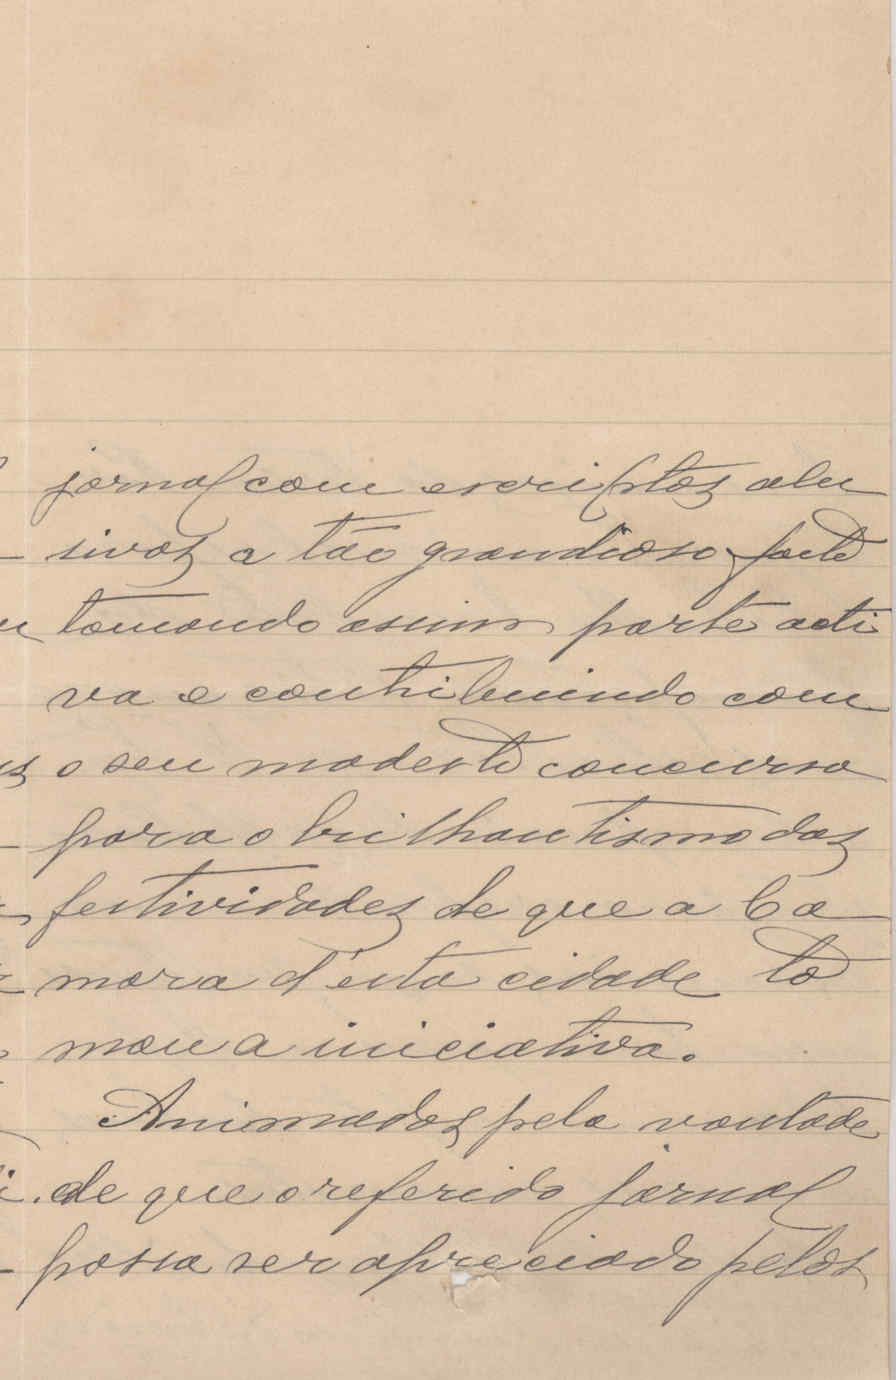 jornal com escriptos allu
sivos a tão grandioso facto
tomando assim parte acti
va e contribuindo com
o seu modesto concurso
para o brilhantismo das
festividades de que a Ca
mara d'esta cidade to
mou a iniciativa.
Animados pela vontade
de que o referido jornal
possa ser apreciado pelos